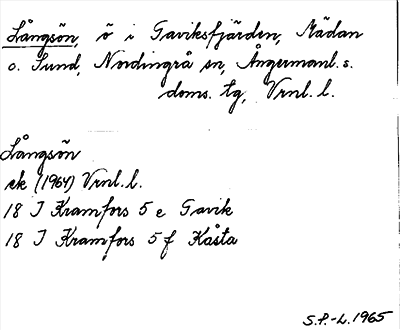 Långsön, ö i Gaviksfjärden, Mädan
o. Sund, Nordingrå sn, Ångermanl. s.
doms. tg, Vrnl. l.
Långsön
ek (1964) Vrnl. l.
18 I Kramfors 5 e Gavik
18 I Kramfors 5 f Kåsta
S.P.-L. 1965